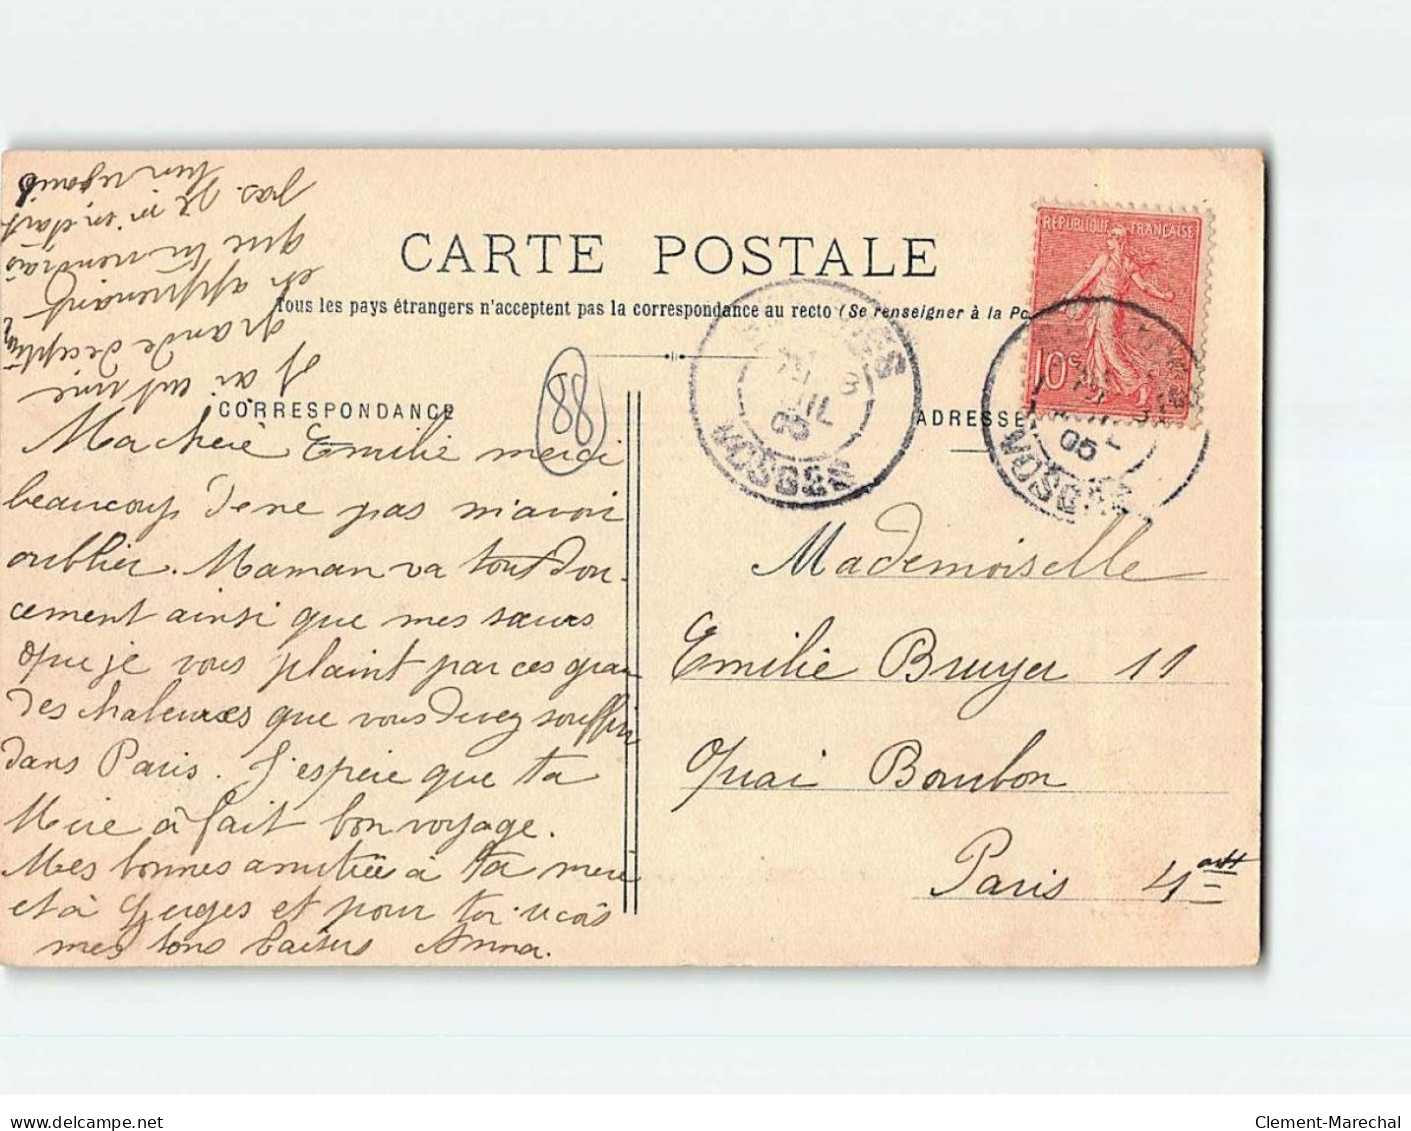 CARTE POSTALE
Tous les pays étrangers n'acceptent pas la correspondance au recto (Se renseigner à la Po
CORRESPONDANCE
ADRESSE
RÉPUBLIQUE FRANÇAISE
10c
VOSGES
05
VOSGES
05
88
Ma chère Emilie merci
beaucoup de ne pas m'avoir
oublier. Maman va tout dou-
cement ainsi que mes sœurs
que je vous plaint par ces gran
des chaleurs que vous devez souffrir
dans Paris. J'espère que ta
Mère à fait bon voyage.
Mes bonnes amitiés à ta mère
et à et pour toi
mes bons baisers Anna.
J'ai eu une
grande déception
en apprenant
que tu viendrais
pas. Je m'en étais
Mademoiselle
Emilie Bruyer 11
Quai Bourbon
Paris 4 arrt
delcampe.net
Clement-Marechal